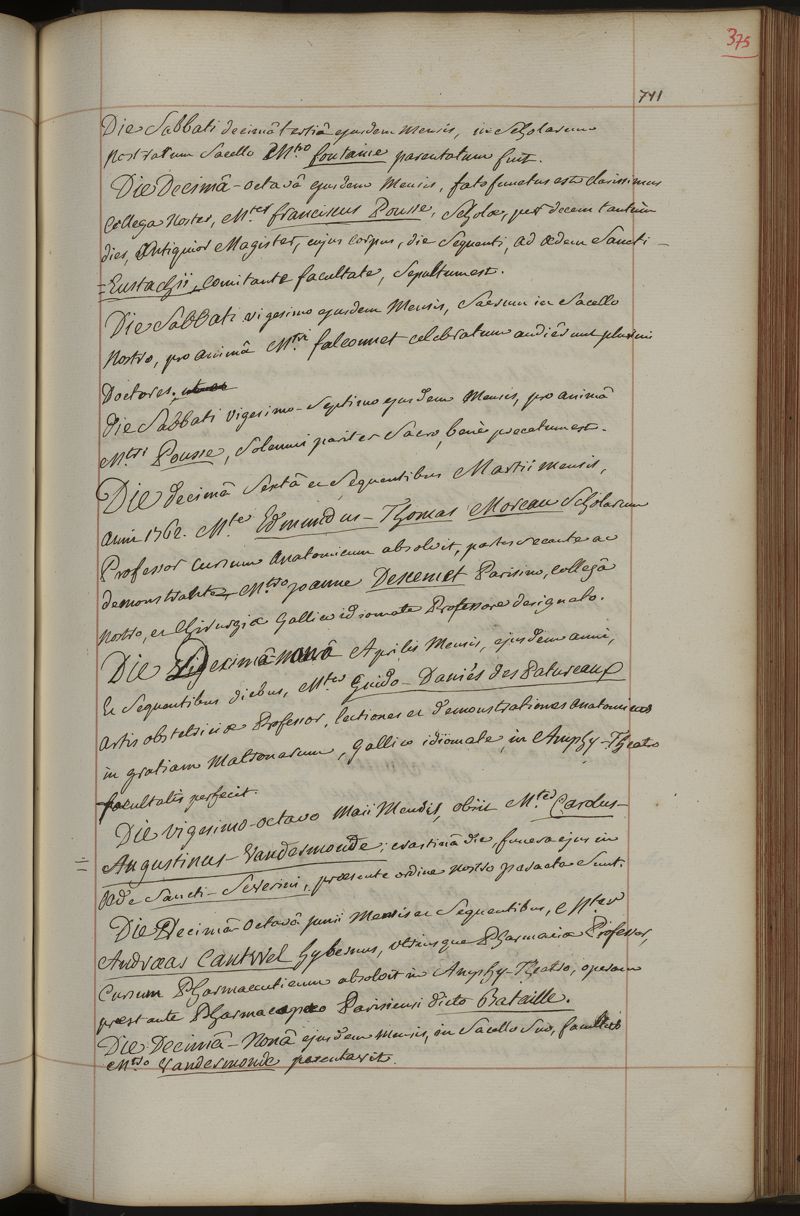 375
741
Die Sabbati decimâ tertiâ ejusdem Mensis, in Scholarum
nostrarum Sacello Mtro fontaine parentatum fuit.
Die Decimâ-octavâ ejusdem Mensis, fato functus est clarissimus
Collega Noster, Mter franciscus Pousse, Scholæ, per decem tantùm
dies, Antiquior Magister, cujus Corpus, die Sequenti, ad ædem Sancti-
=Eustachii, Comitante facultate, Sepultum est.
Die Sabbati vigesimo ejusdem Mensis, Sacrum in Sacello
Nostro, pro animâ Mtri falconnet celebratum audiêrunt plurimi
Doctores.
die Sabbati vigesimo-Septimo ejusdem Mensis, pro animâ
Mtri Pousse, Solemni pariter Sacro, benè precatum est.
Die decimâ Sextâ et Sequentibus Martii mensis,
anni 1762. Mter Edmundus-Thomas Moreau Scholarum
Professor Cursum Anatomicum absolvit, partes secante ac
demonstrante, Mtro joanne Descemet Parisino, collegâ
nostro, et Chirurgiæ Gallico idiomate Professore designato.
Die Vigesimâ-nonâ Aprilis Mensis, ejusdem anni,
Et Sequentibus diebus, Mter Guido-Daniés des Patureaux
Artis obstetriciæ Professor, lectiones et demonstrationes anatomicas
in gratiam Matronarum, Gallico idiomate, in Amphy-Theatro
facultatis perfecit.
Die vigesimo-octavo Maii Mensis, obiit Mter Carolus-
= Augustinus-Vandermonde; crastinâ die, funera ejus in
Æde Sancti-Severini, præsente ordine nostro peracta Sunt.
Die Decimâ-octavâ junii Mensis et Sequentibus, Mter
Andræas Cantwel hybernus, utriusque Pharmaciæ Professor,
Cursum Pharmaceuticum absolvit in Amphy-Theatro, operam
præstante Pharmacopæo Parisiensi dicto Bataille.
Die Decimâ-Nonâ ejusdem Mensis, in Sacello Suo, facultas
Mtro Vandermonde parentavit.